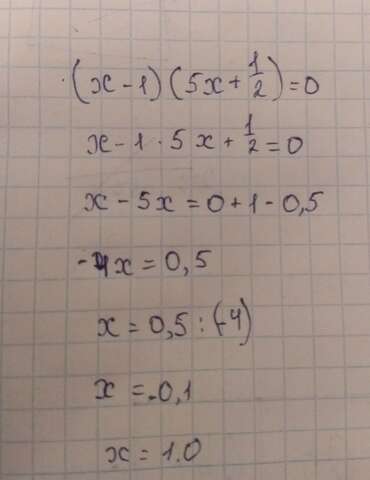 (x - 1) (5x + 1/2) = 0
x - 1 · 5x + 1/2 = 0
x - 5x = 0 + 1 - 0,5
-4x = 0,5
x = 0,5 : (-4)
x = -0,1
x = 1.0